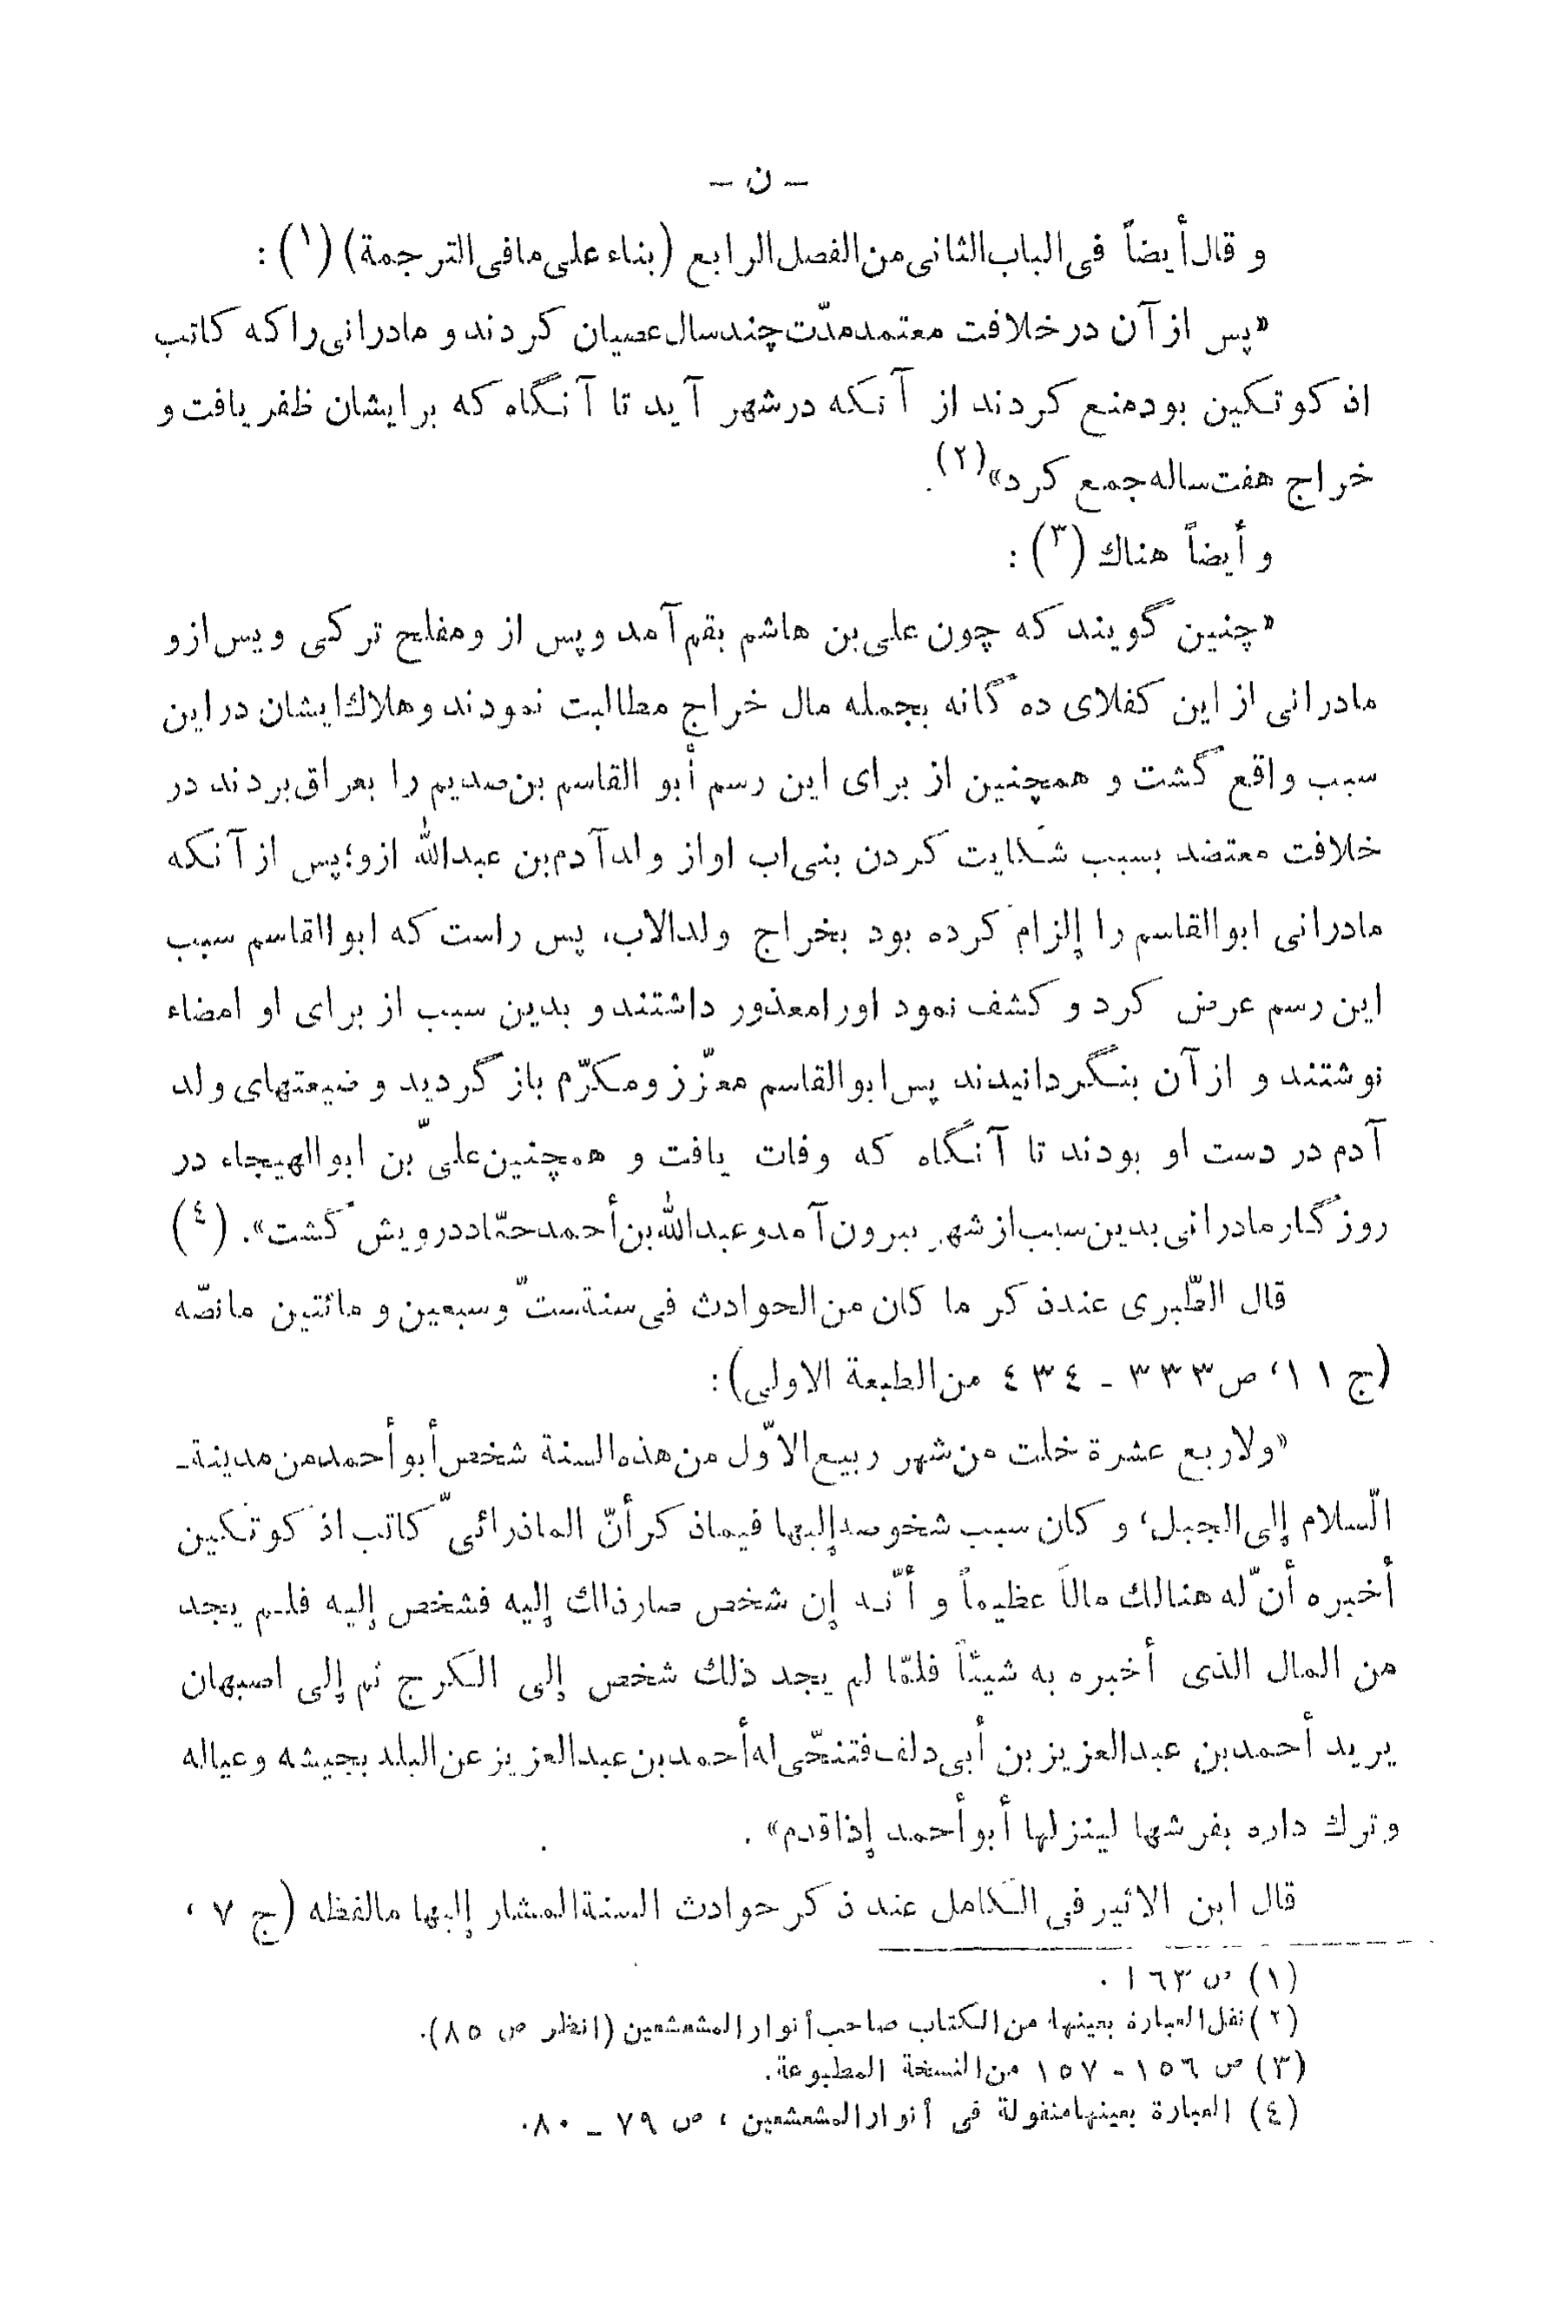 - ن -
و قال أيضاً فى الباب الثانى من الفصل الرابع (بناء على مافى الترجمة) (١) :
«پس از آن در خلافت معتمد مدّت چند سال عصيان كردند و مادرانى را كه كاتب
اذ كوتكين بود منع كردند از آنكه در شهر آيد تا آنگاه كه بر ايشان ظفر يافت و
خراج هفت ساله جمع كرد»(٢).
و أيضاً هناك (٣) :
«چنين گويند كه چون على بن هاشم بقم آمد و پس از و مفلح تركى و پس از و
مادرانى از اين كفلاى ده گانه بجمله مال خراج مطالبت نمودند و هلاك ايشان در اين
سبب واقع گشت و همچنين از براى اين رسم أبو القاسم بن صديم را بعراق بردند در
خلافت معتضد بسبب شكايت كردن بنى اب او از ولد آدم بن عبدالله ازو؛ پس از آنكه
مادرانى ابوالقاسم را إلزام كرده بود بخراج ولدالاب، پس راست كه ابوالقاسم سبب
اين رسم عرض كرد و كشف نمود او را معذور داشتند و بدين سبب از براى او امضاء
نوشتند و از آن بنگردانيدند پس ابوالقاسم معزّز و مكرّم باز گرديد و ضيعتهاى ولد
آدم در دست او بودند تا آنگاه كه وفات يافت و همچنين علىّ بن ابوالهيجاء در
روزگار مادرانى بدين سبب از شهر بيرون آمد و عبدالله بن أحمد حمّاد درويش گشت». (٤)
قال الطّبرى عند ذكر ما كان من الحوادث فى سنة ستّ و سبعين و مائتين مانصّه
(ج ١١، ص ٣٣٣ - ٤٣٤ من الطبعة الاولى):
«ولاربع عشرة خلت من شهر ربيع الاوّل من هذه السنة شخص أبو أحمد من مدينة-
السّلام إلى الجبل؛ و كان سبب شخوصه إليها فيما ذكر أنّ الماذرائىّ كاتب اذ كوتكين
أخبره أنّ له هنالك مالاً عظيماً و أنّه إن شخص صار ذلك إليه فشخص إليه فلم يجد
من المال الذى أخبره به شيئاً فلمّا لم يجد ذلك شخص إلى الكرج ثم إلى اصبهان
يريد أحمد بن عبدالعزيز بن أبى دلف فتنحّى له أحمد بن عبدالعزيز عن البلد بجيشه و عياله
و ترك داره بفرشها لينزلها أبو أحمد إذا قدم» .
قال ابن الاثير فى الكامل عند ذكر حوادث السنة المشار إليها مالفظه (ج ٧ ،
(١) ص ١٦٣ .
(٢) نقل العبارة بعينها من الكتاب صاحب أنوار المشعشعين (انظر ص ٨٥).
(٣) ص ١٥٦ - ١٥٧ من النسخة المطبوعة.
(٤) العبارة بعينها منقولة فى أنوار المشعشعين ، ص ٧٩ - ٨٠.